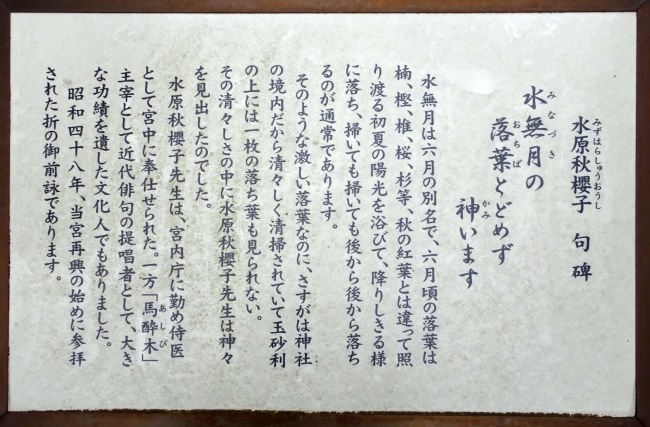 水原秋櫻子　句碑
みずはらしゅうおうし
水無月の
みなづき
落葉とどめず
おちば
神います
かみ
水無月は六月の別名で、六月頃の落葉は
楠、樫、椎、桜、杉等、秋の紅葉とは違って照
り渡る初夏の陽光を浴びて、降りしきる様
に落ち、掃いても掃いても後から後から落ち
るのが通常であります。
そのような激しい落葉なのに、さすがは神社
の境内だから清々しく清掃されていて玉砂利
の上には一枚の落ち葉も見られない。
その清々しさの中に水原秋櫻子先生は神々
を見出したのでした。
水原秋櫻子先生は、宮内庁に勤め侍医
として宮中に奉仕せられた。一方「馬酔木」
あしび
主宰として近代俳句の提唱者として、大き
な功績を遺した文化人でもありました。
昭和四十八年、当宮再興の始めに参拝
された折の御前詠であります。